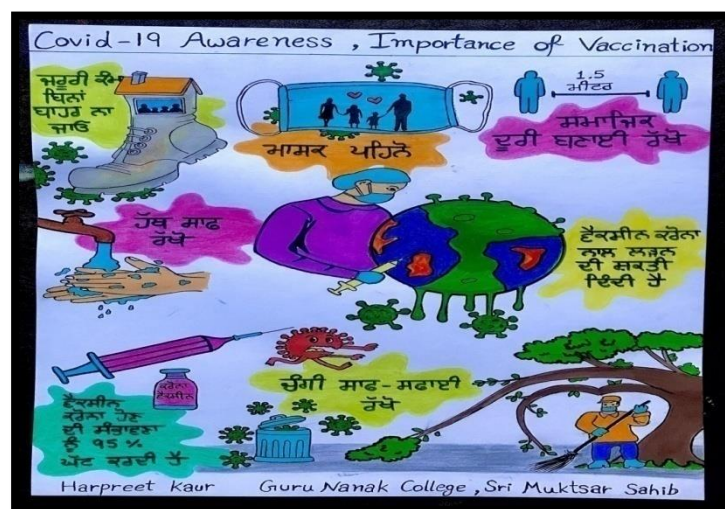 Covid-19 Awareness, Importance of Vaccination
ਜ਼ਰੂਰੀ ਕੰਮ
ਬਿਨਾਂ
ਬਾਹਰ ਨਾ
ਜਾਓ
ਮਾਸਕ ਪਹਿਨੋ
1.5
ਮੀਟਰ
ਸਮਾਜਿਕ
ਦੂਰੀ ਬਣਾਈ ਰੱਖੋ
ਹੱਥ ਸਾਫ
ਰੱਖੋ
ਵੈਕਸੀਨ ਕਰੋਨਾ
ਨਾਲ ਲੜਨ
ਦੀ ਸ਼ਕਤੀ
ਦਿੰਦੀ ਹੈ
ਕਰੋਨਾ
ਵੈਕਸੀਨ
ਵੈਕਸੀਨ
ਕਰੋਨਾ ਹੋਣ
ਦੀ ਸੰਭਾਵਨਾ
ਨੂੰ 95 %
ਘੱਟ ਕਰਦੀ ਹੈ
ਚੰਗੀ ਸਾਫ-ਸਫਾਈ
ਰੱਖੋ
Harpreet Kaur Guru Nanak College, Sri Muktsar Sahib